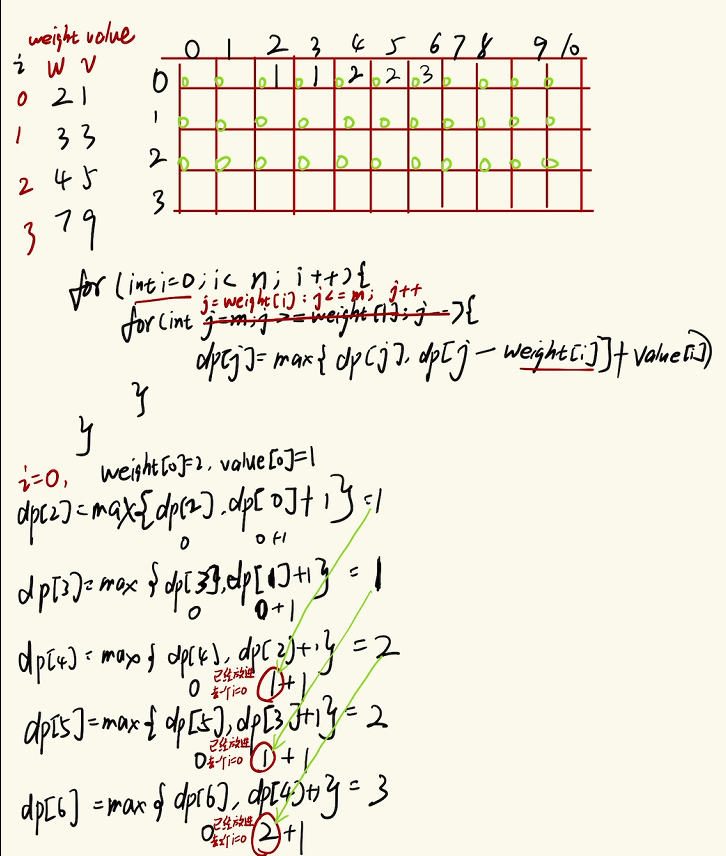 weight value
i W V
0 2 1
1 3 3
2 4 5
3 7 9
0 1 2 3 4 5 6 7 8 9 10
0 0 0 0 1 0 1 0 2 0 2 0 3 0 0 0 0 0
1 0 0 0 0 0 0 0 0 0 0 0
2 0 0 0 0 0 0 0 0 0 0 0
3
for (int i=0; i< n; i++){
j=weight[i]; j<=m; j++
for(int j=m; j>=weight[i]; j--){
dp[j]=max{ dp[j], dp[j-weight[i]]+value[i])
}
}
i=0, weight[0]=2, value[0]=1
dp[2]=max{dp[2], dp[0]+1}=1
0 0+1
dp[3]=max{dp[3], dp[1]+1}=1
0 0+1
dp[4]=max{dp[4], dp[2]+1}=2
0 已经放进去1个i=0 1+1
dp[5]=max{dp[5], dp[3]+1}=2
0 已经放进去1个i=0 1+1
dp[6]=max{dp[6], dp[4]+1}=3
0 已经放进去2个i=0 2+1